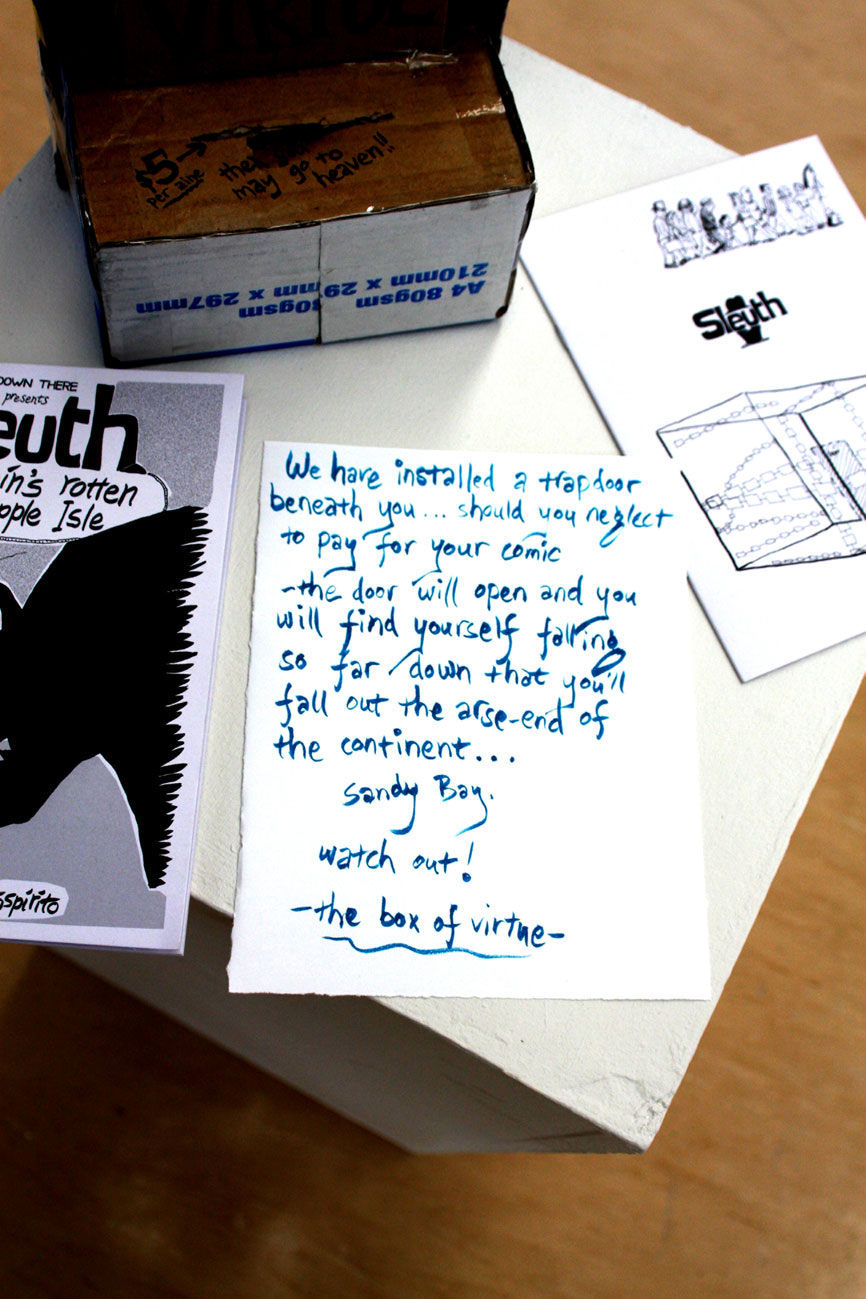 VIRTUE
$5 →
per zine
then
may go to
heaven!!
A4 80gsm
210mm x 297mm
80gsm
mm x 297mm
Sleuth
DOWN THERE
presents
euth
in's rotten
pple Isle
spirito
We have installed a trapdoor
beneath you... should you neglect
to pay for your comic
-the door will open and you
will find yourself falling
so far down that you'll
fall out the arse-end of
the continent...
Sandy Bay.
watch out!
-the box of virtue-